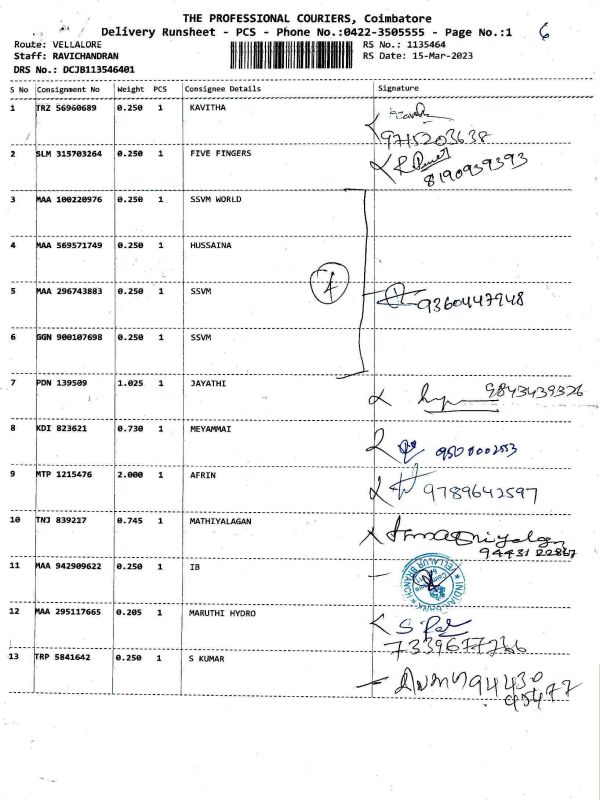 THE PROFESSIONAL COURIERS, Coimbatore
6
Delivery Runsheet - PCS - Phone No.:0422-3505555 - Page No.:1
Route: VELLALORE
RS No.: 1135464
Staff: RAVICHANDRAN
RS Date: 15-Mar-2023
DRS No.: DCJB113546401
S No Consignment No Weight PCS Consignee Details Signature
1 TRZ 56960689 0.250 1 KAVITHA
9715203638
2 SLM 315703264 0.250 1 FIVE FINGERS
8190939393
3 MAA 100220976 0.250 1 SSVM WORLD
4 MAA 569571749 0.250 1 HUSSAINA
4
5 MAA 296743883 0.250 1 SSVM
9360447948
6 GGN 900107698 0.250 1 SSVM
7 PDN 139509 1.025 1 JAYATHI
9843439326
8 KDI 823621 0.730 1 MEYAMMAI
9500002553
9 MTP 1215476 2.000 1 AFRIN
9789642597
10 TNJ 839217 0.745 1 MATHIYALAGAN
11 MAA 942909622 0.250 1 IB
INDIAN BANK VELLALUR BRANCH
12 MAA 295117665 0.205 1 MARUTHI HYDRO
13 TRP 5841642 0.250 1 S KUMAR
94430
95477